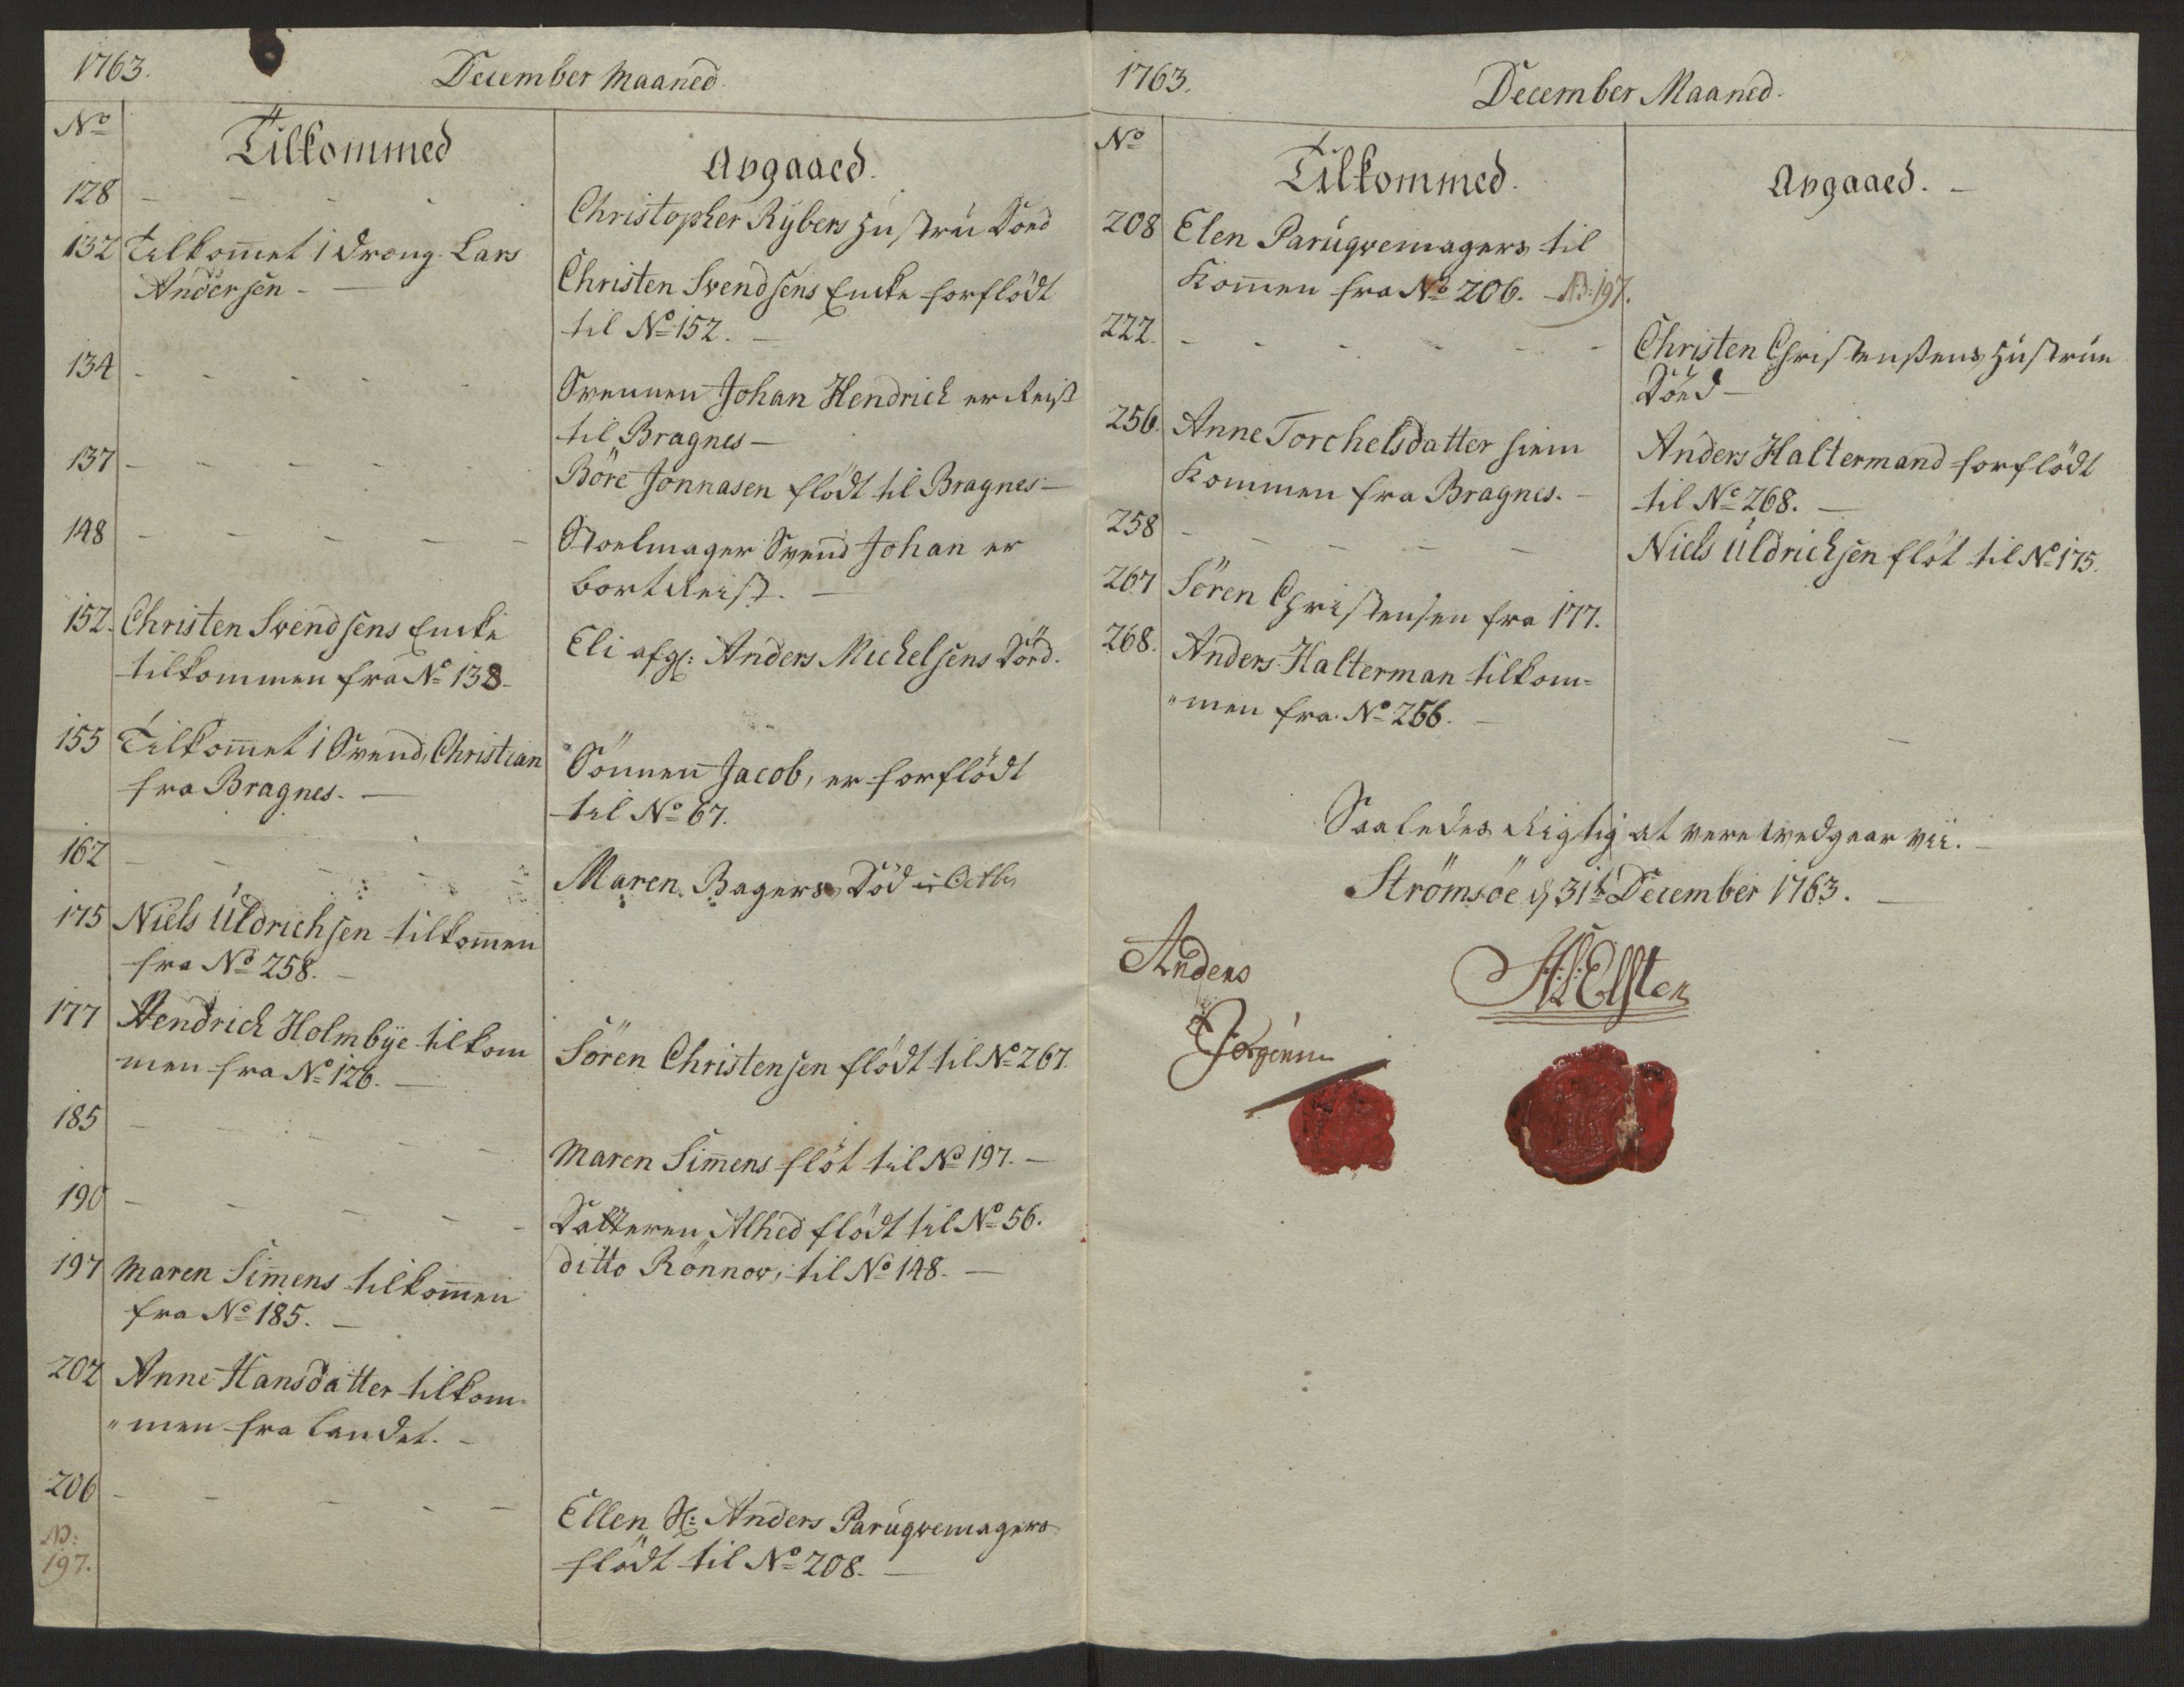 1763.
December Maaned
No
Tilkommed
Avgaaed.
128 - - - -
Christopher Rybers Hustru Döed
132 Tilkom̄et 1 Dreng. Lars
Andersen -
Christen Svendsens Encke forflödt
til No 152. -
134 - - - - -
Svennen Johan Hendrich er Reist
til Bragnes -
137 - - - -
Böre Jonnasen flödt til Bragnes -
148 - - - - -
Stoelmager Svend Johan er
bort Reist. -
152. Christen Svendsens Encke
tilkommen fra No 138 -
Eli afg: Anders Michelsens Döed.
155 Tilkom̄et 1 Svend, Christian
fra Bragnes. -
Sönnen Jacob, er forflödt
til No 67.
162 - - - - -
Maren Bagers Död i Octbr
175 Niels Uldrichsen tilkom̄en
fra No 258. -
177 Hendrich Holmbÿe tilkom
men fra No 126. -
Sören Christensen flödt til No 267.
185 - - - -
Maren Sim̄ens flöt til No 197. -
190 - - - - -
Datteren Alhed flödt til No 56.
ditto Rönnov, til No 148. -
197 Maren Sim̄ens tilkom̄en
fra No 185. -
202 Anne Hansdatter tilkom-
"men fra Landet. -
206 - - - - -
Ellen Sl: Anders Paruqvemagers
flödt til No 208. -
ND:
197.
1763.
December Maaned.
No
Tilkommed.
Avgaaed. -
208 Elen Paruqvemagers til
Kom̄en fra No 206. - ND: 197.
222. - - - - - -
Christen Christensens Hustrue
Döed -
256. Anne Torchelsdatter hiem
Kommen fra Bragnes. -
Anders Haltermand forflödt
til No 268. -
258 - - - - -
Niels Uldrichsen flöt til No 175.
267 Sören Christensen fra 177.
268. Anders Halterman tilkom=
"men fra No 256. -
Saaledes Rigtig at vere tvedgaar vii. -
Strömsöe d 31te December 1763. -
Anders
Jörgensen
Elster